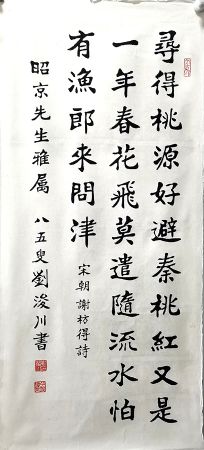 尋得桃源好避秦桃紅又是
一年春花飛莫遣隨流水怕
有漁郎來問津
宋朝謝枋得詩
昭京先生雅屬
八五叟劉浚川書